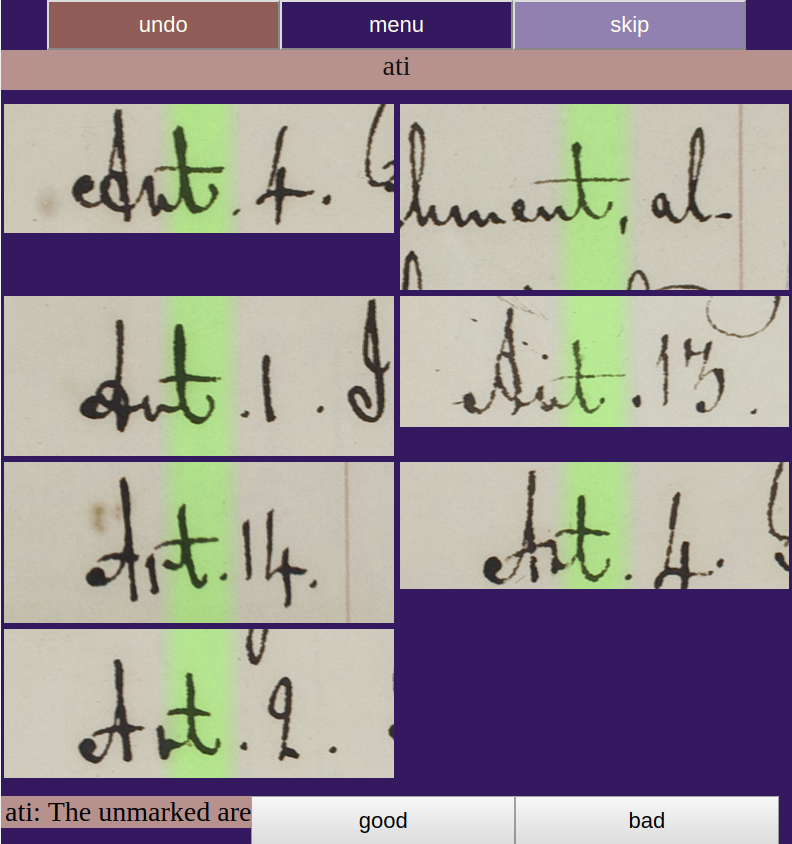 undo menu skip
ati
Art. 4.
hment, al-
Art. 1. I
Art. 13.
Art. 14.
Art. 4.
Art. 2.
ati: The unmarked are good bad